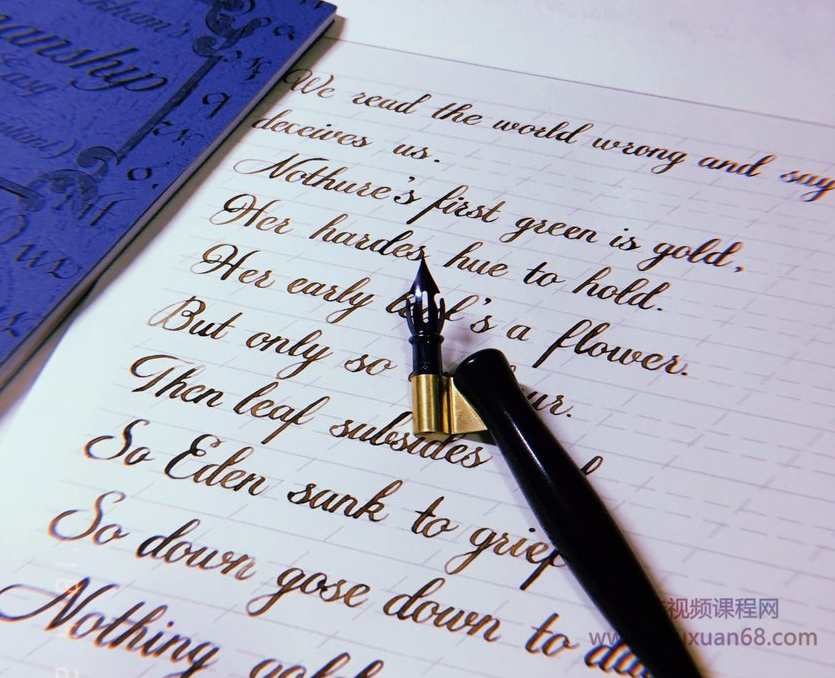 We read the world wrong and say
deceives us.
Nothure's first green is gold,
Her hardes hue to hold.
Her early leaf's a flower.
But only so
Then leaf subsides
So Eden sank to grief
So down gose down to
Nothing gold
视频课程网